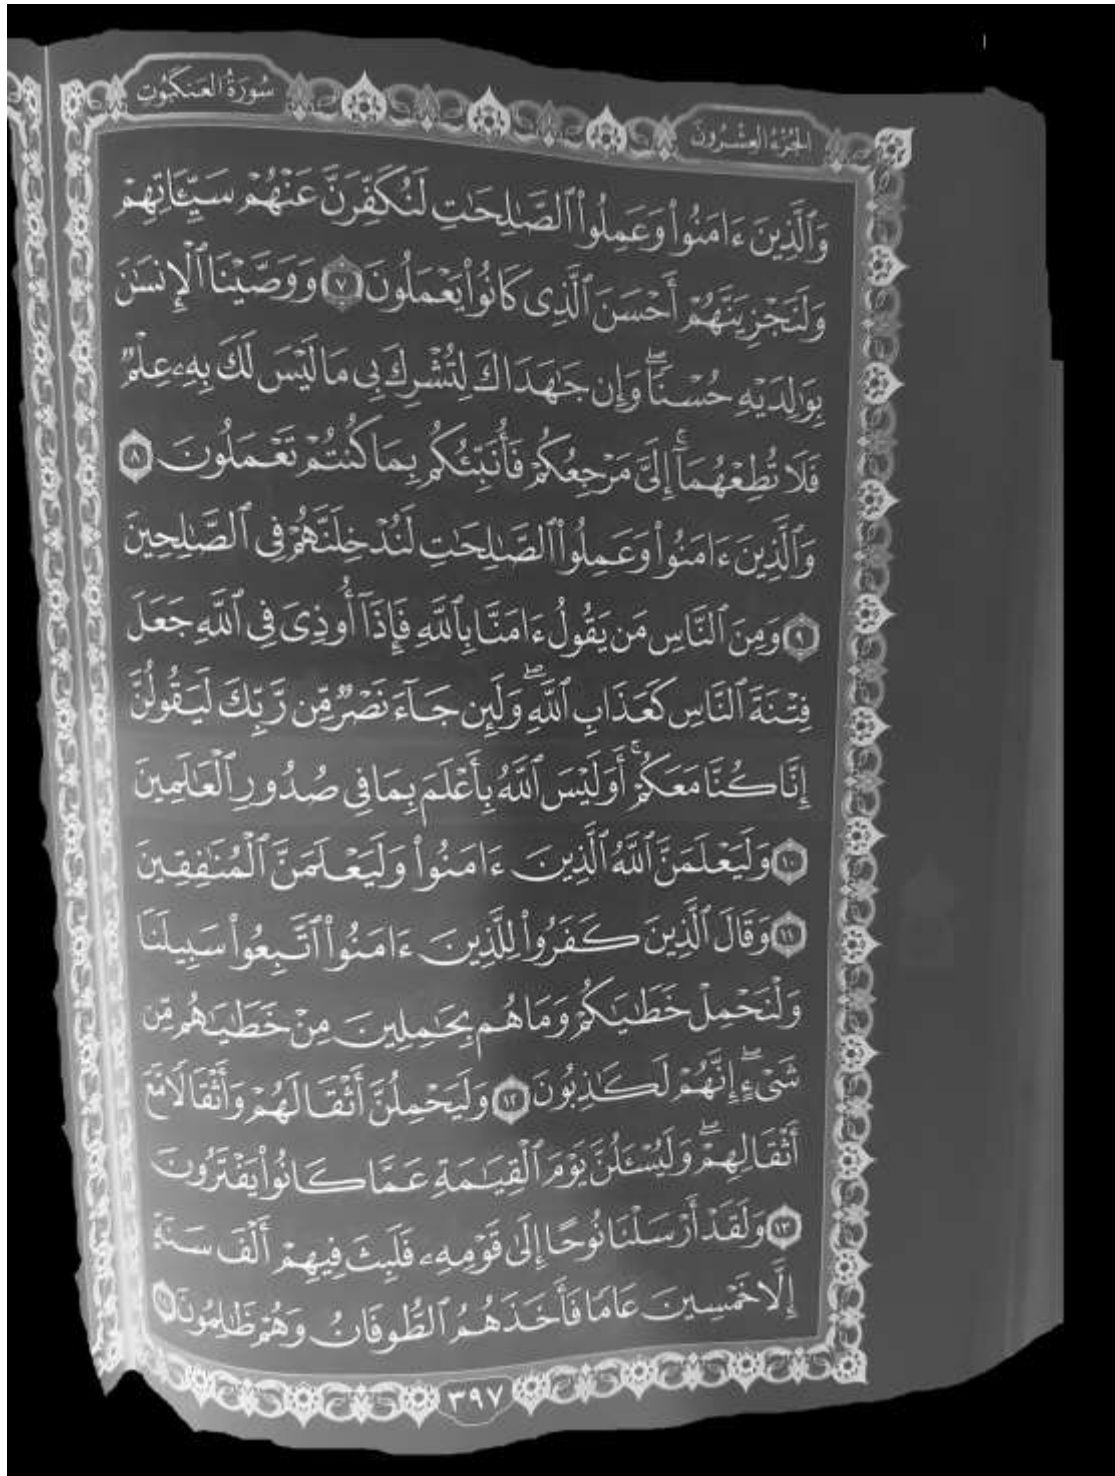 الجُزْءُ العِشْرُونَ
سُورَةُ العَنكَبُوتِ
وَٱلَّذِينَ ءَامَنُوا۟ وَعَمِلُوا۟ ٱلصَّـٰلِحَـٰتِ لَنُكَفِّرَنَّ عَنْهُمْ سَيِّـَٔاتِهِمْ
وَلَنَجْزِيَنَّهُمْ أَحْسَنَ ٱلَّذِى كَانُوا۟ يَعْمَلُونَ ٧ وَوَصَّيْنَا ٱلْإِنسَـٰنَ
بِوَٰلِدَيْهِ حُسْنًا ۖ وَإِن جَـٰهَدَاكَ لِتُشْرِكَ بِى مَا لَيْسَ لَكَ بِهِۦ عِلْمٌ
فَلَا تُطِعْهُمَآ ۚ إِلَىَّ مَرْجِعُكُمْ فَأُنَبِّئُكُم بِمَا كُنتُمْ تَعْمَلُونَ ٨
وَٱلَّذِينَ ءَامَنُوا۟ وَعَمِلُوا۟ ٱلصَّـٰلِحَـٰتِ لَنُدْخِلَنَّهُمْ فِى ٱلصَّـٰلِحِينَ
٩ وَمِنَ ٱلنَّاسِ مَن يَقُولُ ءَامَنَّا بِٱللَّهِ فَإِذَآ أُوذِىَ فِى ٱللَّهِ جَعَلَ
فِتْنَةَ ٱلنَّاسِ كَعَذَابِ ٱللَّهِ ۖ وَلَئِن جَآءَ نَصْرٌ مِّن رَّبِّكَ لَيَقُولُنَّ
إِنَّا كُنَّا مَعَكُمْ ۚ أَوَلَيْسَ ٱللَّهُ بِأَعْلَمَ بِمَا فِى صُدُورِ ٱلْعَـٰلَمِينَ
١٠ وَلَيَعْلَمَنَّ ٱللَّهُ ٱلَّذِينَ ءَامَنُوا۟ وَلَيَعْلَمَنَّ ٱلْمُنَـٰفِقِينَ
١١ وَقَالَ ٱلَّذِينَ كَفَرُوا۟ لِلَّذِينَ ءَامَنُوا۟ ٱتَّبِعُوا۟ سَبِيلَنَا
وَلْنَحْمِلْ خَطَـٰيَـٰكُمْ وَمَا هُم بِحَـٰمِلِينَ مِنْ خَطَـٰيَـٰهُم مِّن
شَىْءٍ ۖ إِنَّهُمْ لَكَـٰذِبُونَ ١٢ وَلَيَحْمِلُنَّ أَثْقَالَهُمْ وَأَثْقَالًا مَّعَ
أَثْقَالِهِمْ ۖ وَلَيُسْـَٔلُنَّ يَوْمَ ٱلْقِيَـٰمَةِ عَمَّا كَانُوا۟ يَفْتَرُونَ
١٣ وَلَقَدْ أَرْسَلْنَا نُوحًا إِلَىٰ قَوْمِهِۦ فَلَبِثَ فِيهِمْ أَلْفَ سَنَةٍ
إِلَّا خَمْسِينَ عَامًا فَأَخَذَهُمُ ٱلطُّوفَانُ وَهُمْ ظَـٰلِمُونَ
٣٩٧